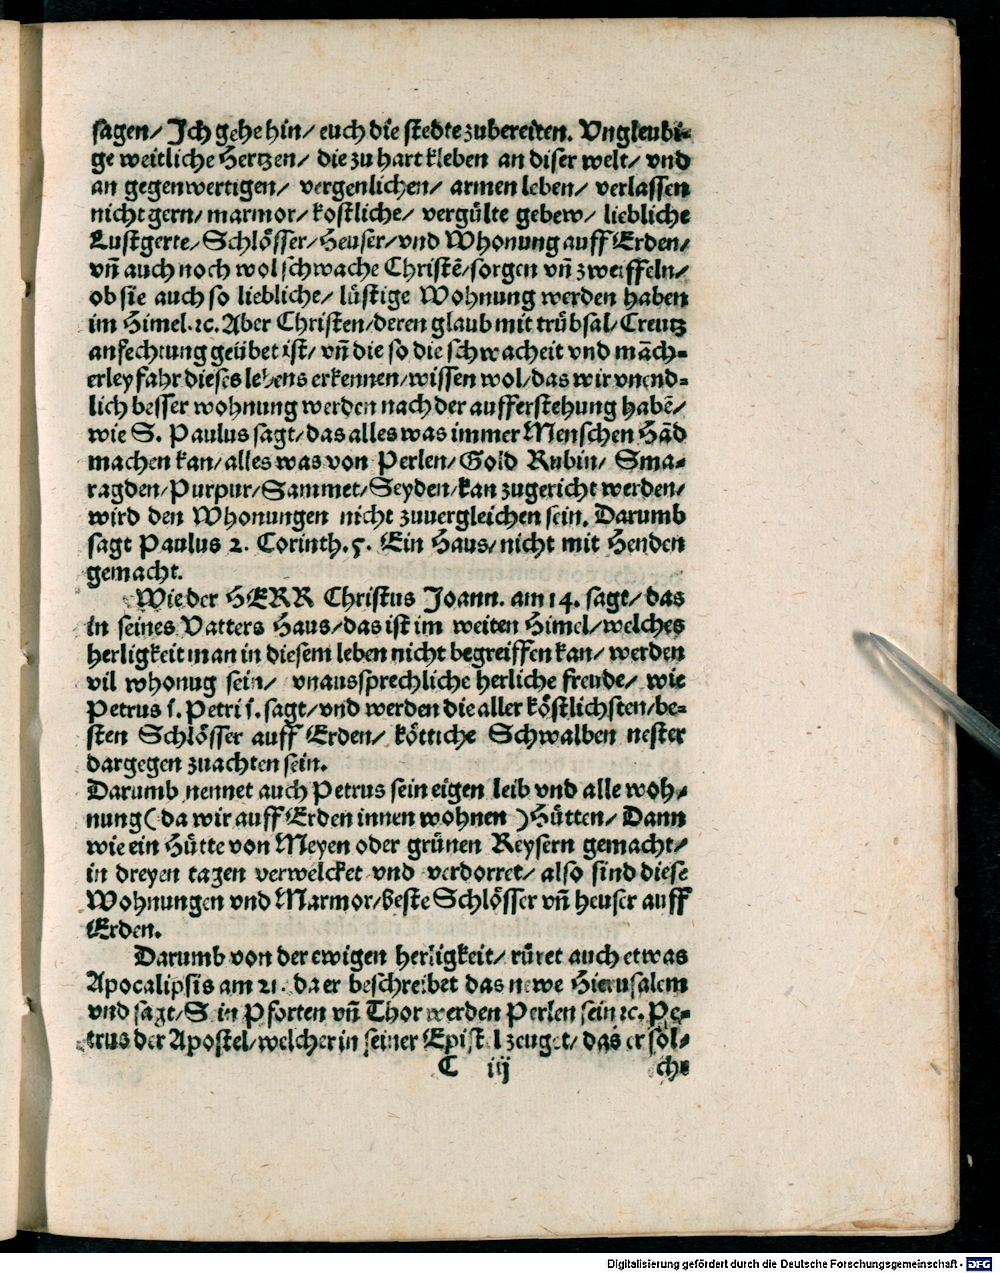 sagen/ Ich gehe hin/ euch die stedte zubereiten. Vngleubi-
ge weitliche Hertzen/ die zu hart kleben an diser welt/ vnd
an gegenwertigen/ vergenlichen/ armen leben/ verlassen
nicht gern/ marmor/ kostliche/ vergülte gebew/ liebliche
Lustgerte/ Schlösser/ Heuser/ vnd Whonung auff Erden/
vñ auch noch wol schwache Christē/ sorgen vñ zweiffeln/
ob sie auch so liebliche/ lüstige Wohnung werden haben
im Himel. ꝛc. Aber Christen/ deren glaub mit trübsal/ Creutz
anfechtung geübet ist/ vñ die so die schwacheit vnd māch-
erley fahr dieses lebens erkennen/ wissen wol/ das wir vnend-
lich besser wohnung werden nach der aufferstehung habē/
wie S. Paulus sagt/ das alles was immer Menschen Hād
machen kan/ alles was von Perlen/ Gold Rubin/ Sma-
ragden/ Purpur/ Sammet/ Seyden/ kan zugericht werden/
wird den Whonungen nicht zuuergleichen sein. Darumb
sagt Paulus 2. Corinth. 5. Ein Haus/ nicht mit Henden
gemacht.
Wie der HERR Christus Joann. am 14. sagt/ das
in seines Vatters Haus/ das ist im weiten Himel/ welches
herligkeit man in diesem leben nicht begreiffen kan/ werden
vil whonug sein/ vnaussprechliche herliche freude/ wie
Petrus 1. Petri 1. sagt/ vnd werden die aller köstlichsten/ be-
sten Schlösser auff Erden/ köttiche Schwalben nester
dargegen zuachten sein.
Darumb nennet auch Petrus sein eigen leib vnd alle woh-
nung (da wir auff Erden innen wohnen) Hütten/ Dann
wie ein Hütte von Meyen oder grünen Reysern gemacht/
in dreyen tagen verwelcket vnd verdorret/ also sind diese
Wohnungen vnd Marmor/ beste Schlösser vñ heuser auff
Erden.
Darumb von der ewigen herligkeit/ rüret auch etwas
Apocalipsis am 21. da er beschreibet das newe Hierusalem
vnd sagt/ in Pforten vñ Thor werden Perlen sein ꝛc. Pe-
trus der Apostel/ welcher in seiner Epistel zeuget/ das er sol-
C iij che
Digitalisierung gefördert durch die Deutsche Forschungsgemeinschaft - DFG